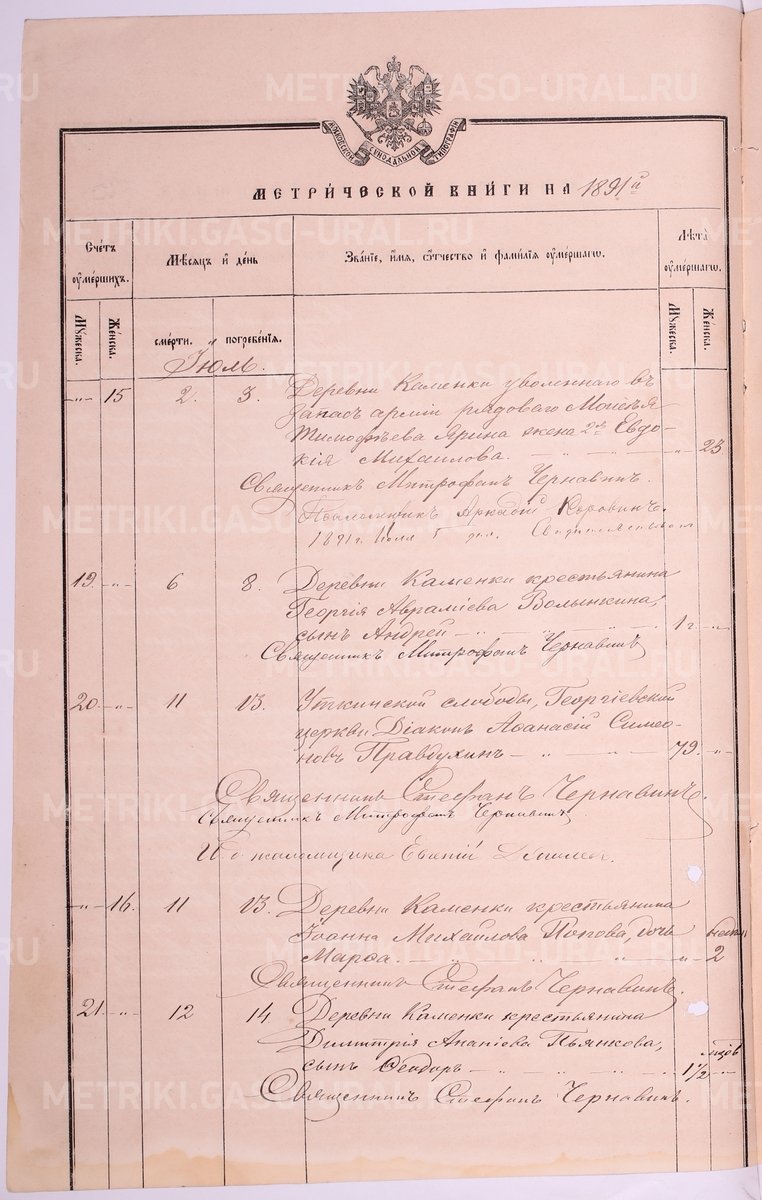 METRIKI.GASO-URAL.RU
МОСКОВСКОЙ СѴНОДАЛЬНОЙ ТИПОГРАФІИ
МЕТРИ́ЧЕСКОЙ КНИ́ГИ НА 1891й
Счетъ оу҆ме́ршихъ.
Мѣсяцъ и҆ де́нь
Зва́нїе, и҆́мя, ѻ҆́тчество и҆ фами́лїя оу҆ме́ршагѡ.
Лѣта̀ оу҆ме́ршагѡ.
Мꙋ́жеска.
Же́нска.
сме́рти.
погребе́нїя.
Мꙋ́жеска.
Же́нска.
Іюль.
-"- 15 2. 3. Деревни Каменки уволеннаго въ
запасъ арміи рядоваго Моисѣя
Тимофѣева Ярина жена 2я Евдо-
кія Михаилова. - " - " - " 23
Священникъ Митрофанъ Чернавинъ.
Псаломщикъ Аркадій Коровинъ.
1891 г. Іюля 5 дня.
19. -"- 6 8. Деревни Каменки крестьянина
Георгія Авраміева Волынкина,
сынъ Андрей - " - " - " 1 г. -"-
Священникъ Митрофанъ Чернавинъ
20. -"- 11 13. Уткинской слободы, Георгіевской
церкви Діаконъ Аѳанасій Симео-
новъ Правдухинъ - " - " - 79. -"-
Священникъ Стефанъ Чернавинъ.
Священникъ Митрофанъ Чернавинъ
И. д. псаломщика Евгеній
-"- 16. 11 13. Деревни Каменки крестьянина
Іоанна Михайлова Попова, дочь недѣл.
Марѳа. - " - " - " 2
Священникъ Стефанъ Чернавинъ.
21. -"- 12 14. Деревни Каменки крестьянина
Димитрія Ананіева Пьянкова,
сынъ Ѳеодоръ - " - " - 1½ -"-
Священникъ Стефанъ Чернавинъ.